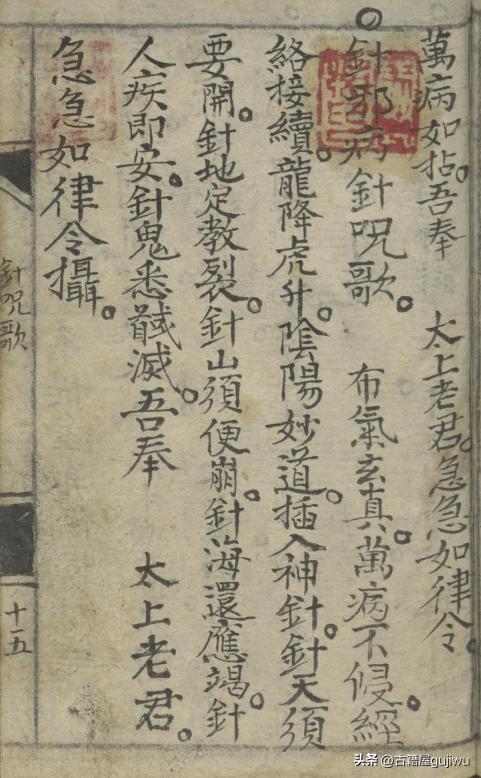 萬病如拈。吾奉　太上老君。急急如律令。
○針邪病針呪歌。　布氣玄真。萬病不侵。經
絡接續。龍降虎升。陰陽妙道。插入神針。針天須
要開。針地定教裂。針山須便崩。針海還應竭。針
人疾即安。針鬼悉馘滅。吾奉　太上老君。
急急如律令攝。
針呪歌
十五
头条 @古籍屋gujiwu